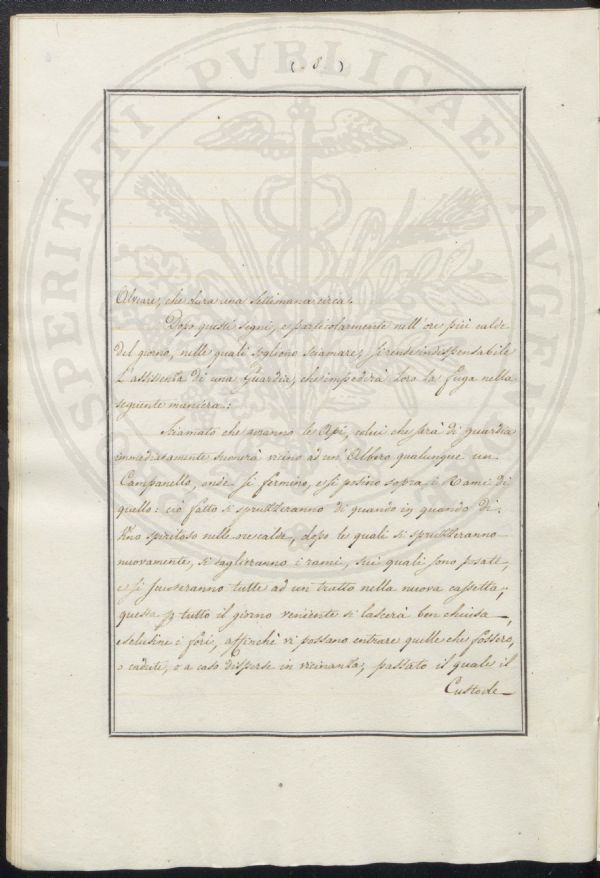 ( 8 )
Alveare, che dura una Settimana circa.
Dopo questi segni, e particolarmente nell'ore più calde
del giorno, nelle quali sogliono sciamare, si rende indispensabile
L'assistenza di una Guardia, che impedirà loro la fuga nella
seguente maniera:
Sciamato che avranno le Api, colui che sarà di guardia
immediatamente suonerà vicino ad un'Albero qualunque un
Campanello, onde si fermino, e si posino sopra i Rami di
quello: ciò fatto si spruzzeranno di quando in quando di
Vino spiritoso nelle ore calde, dopo le quali si spruzzeranno
nuovamente, si taglieranno i rami, sui quali sono posate,
e si scuoteranno tutte ad un tratto nella nuova cassetta;
questa p tutto il giorno veniente si lascerà ben chiusa,
eselusine i fori, affinchè vi possano entrare quelle che fossero,
o cadute, o a caso disperse in vicinanza, passato il quale il
Custode
PROSPERITATI PVBLICAE AVGENDAE